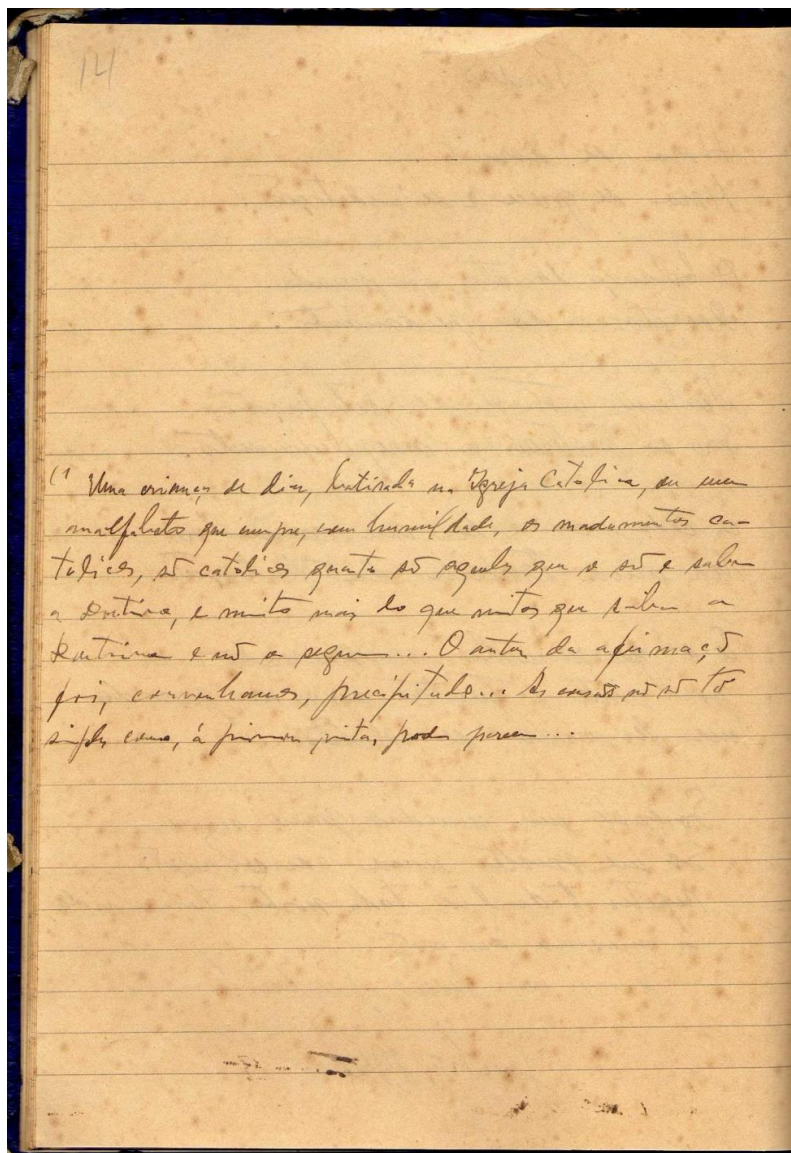 14
(1 Uma criança de dias, batizada na Igreja Católica, ou um
analfabeto que cumpre, com humildade, os madamentos ca-
tolicos, só catolicos quanto só aqueles que o só e sabem
a Doutrina, e muito mais do que muitos que sabem a
Doutrina e nõ a seguem... O autor da afirmaçõ
foi, convenhamos, precipitado... As cousas nõ sõ tõ
simples como, á primeira vista, pode parecer...